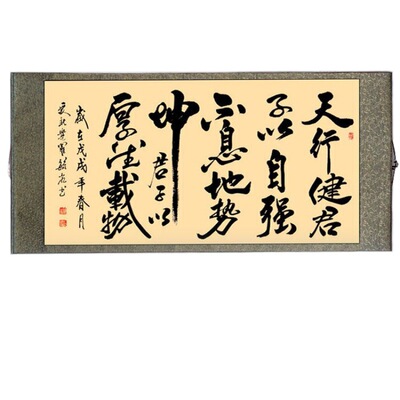 天行健君
子以自强
不息地势
坤君子以
厚德載物
歲在戊戌年春月